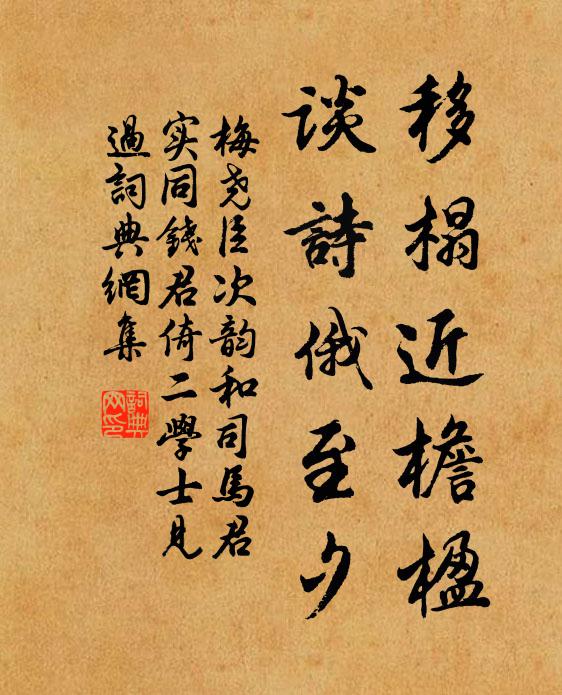 移榻近檐楹
谈詩俄至夕
梅尧臣次韵和司馬君
实同錢君倚二學士見
過詞典網集
詞典网印